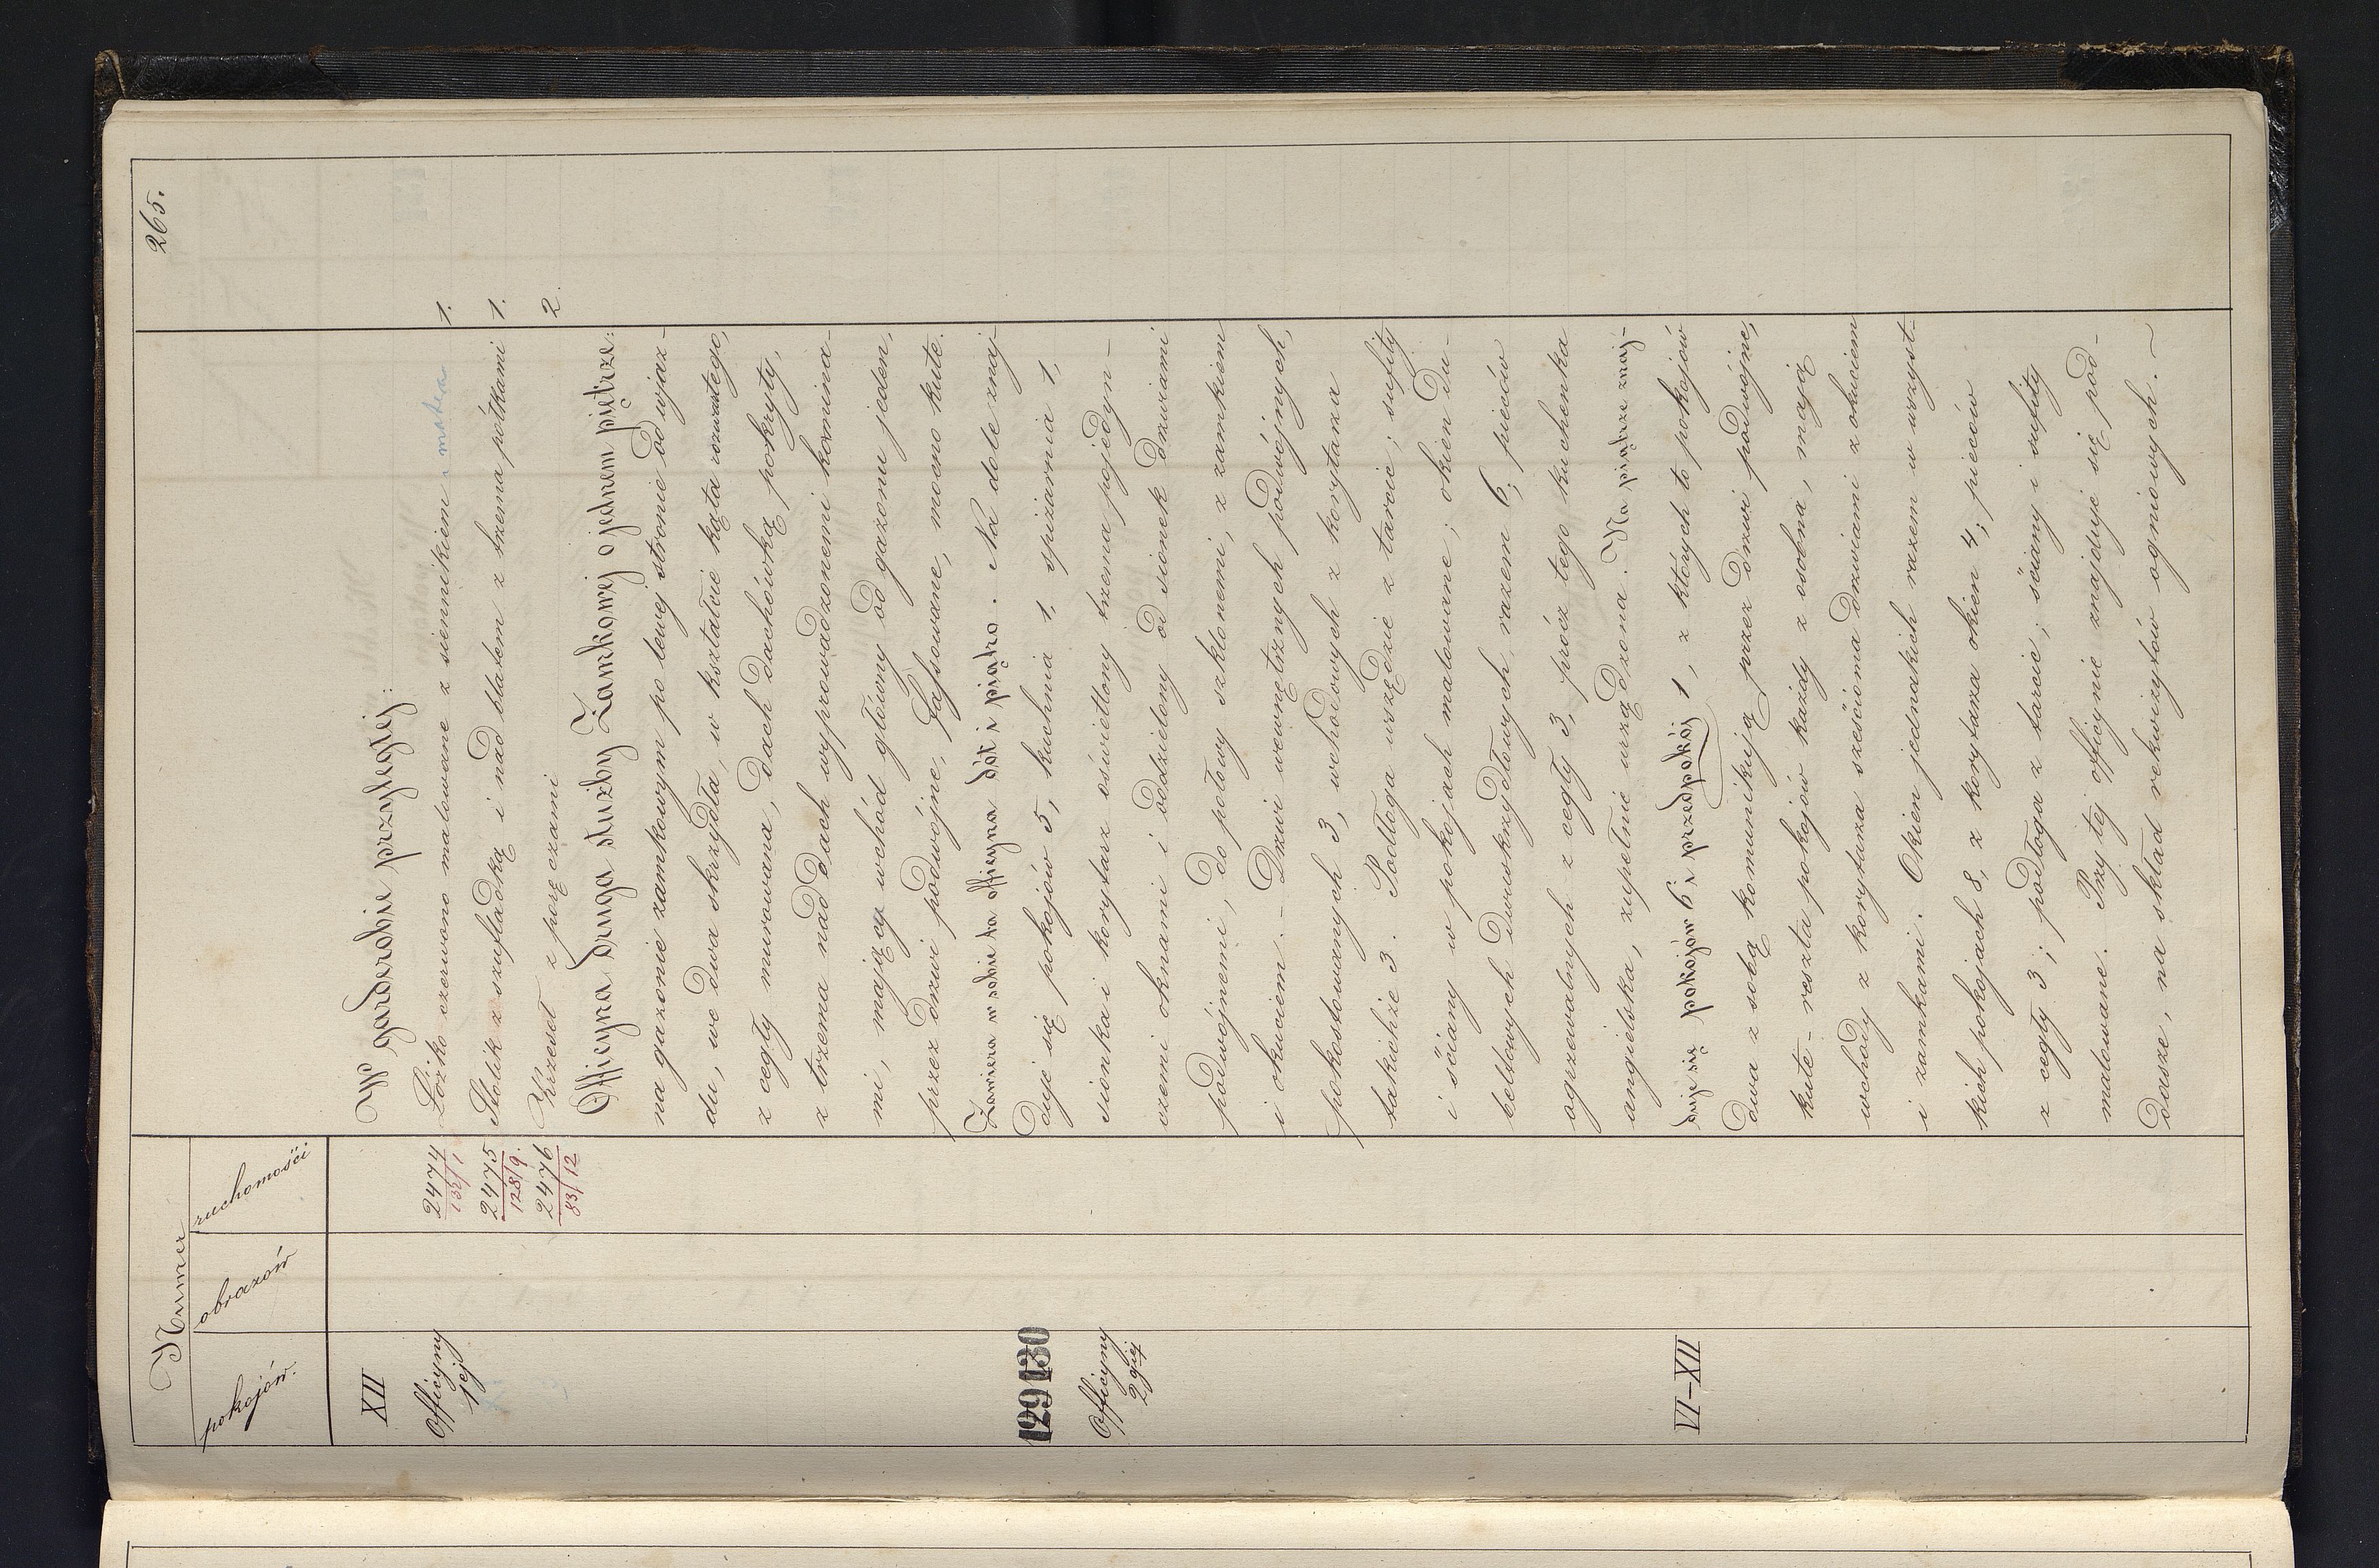 265.
Numer
pokojów.
obrazów
ruchomości
W garderobie przyległej:
XII
Officyny
1ej
2474
132/1
Łóżko czerwono malowane z siennikiem i matera
1.
2475
128/9.
Stolik z szufladką i nad blatem z trzema półkami
1.
2476
83/12
Krzeseł z poręczami
2.
Officyna druga służby Zamkowej o jednem piętrze:
na gazonie zamkowym po lewej stronie od wjaz-
du, we dwa skrzydła, w kształcie kąta rozwartego,
z cegły murowana, dach dachówką pokryty,
z trzema nad dach wyprowadzonemi komina-
mi, mający wchód główny od gazonu jeden,
przez drzwi podwójne, fassowane, mocno kute.
Zawiera w sobie ta officyna dół i piątro. Na dole znaj-
129 130
duje się pokojów 5, kuchnia 1, spiżarnia 1,
Officyny
2giej
sionka i korytarz oświetlony trzema pojedyn-
czemi oknami i oddzielony od sionek drzwiami
podwójnemi, do połowy szklonemi, z zamkiem
i okuciem. - Drzwi wewnętrznych podwójnych,
pokostowanych 3, wchodowych z korytarza
takichże 3. Podłoga wszędzie z tarcic; sufity
i ściany w pokojach malowane; okien du-
beltowych dwuskrzydłowych, razem 6; pieców
ogrzewalnych z cegły 3, prócz tego kuchenka
angielska, zupełnie urządzona. Na piątrze znaj-
VI-XII
duje się pokojów 6 i przedpokój 1, z których to pokojów
dwa z sobą komunikują przez drzwi podwójne,
kute - reszta pokojów każdy z osobna, mają
wchody z korytarza sześcioma drzwiami z okuciem
i zamkami. Okien jednakich razem w wszyst-
kich pokojach 8, z korytarza okien 4; pieców
z cegły 3; podłoga z tarcic; ściany i sufity
malowane. Przy tej officynie znajduje się pod-
dasze, na skład rekwizytów ogniowych. ~